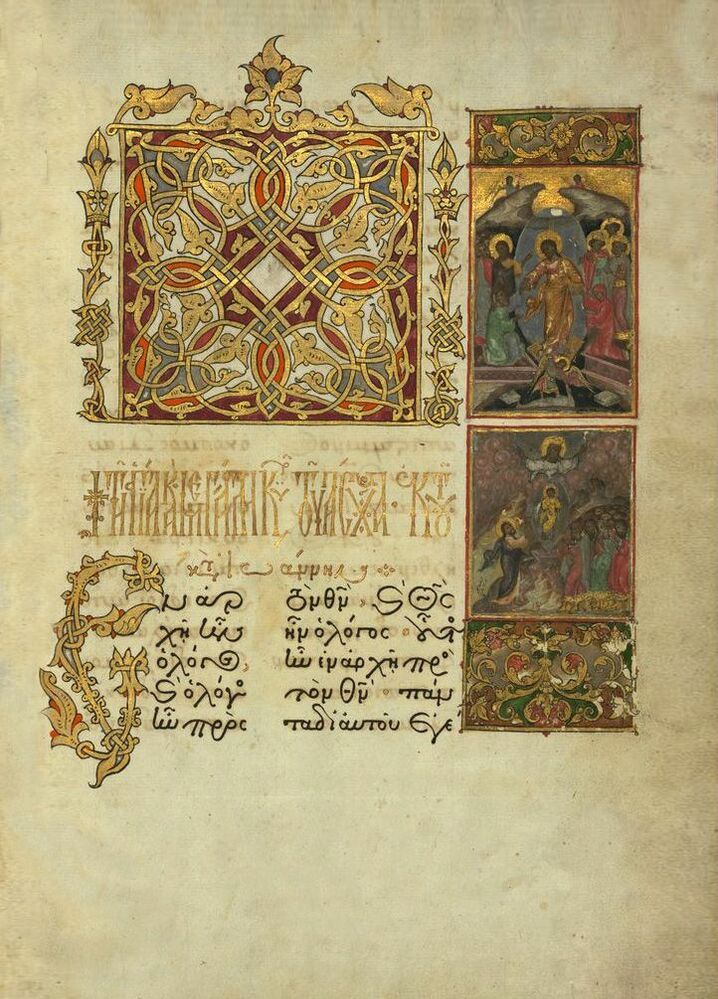 Ἐν ἀρ
χῇ ἦν
ὁ λόγος,
ϗ ὁ λόγο
ἦν πρὸς
τὸν θν. ϗ θς
ἦν ὁ λόγος. οὗτ
ἦν ἐν ἀρχῇ πρὸ
τὸν θν. πάν
τα δι αὐτοῦ ἐγέ